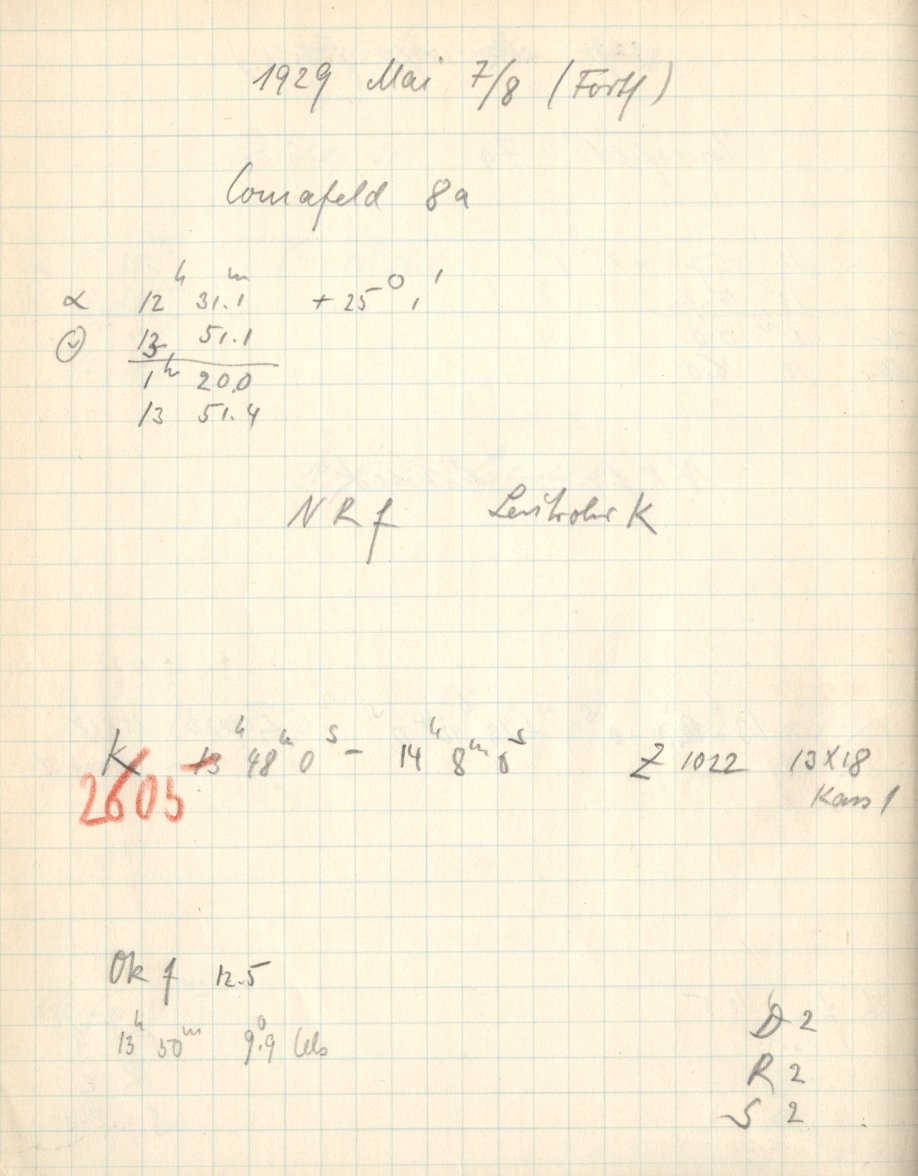 1929 Mai 7/8 (Forts)
Comafeld 8a
α 12h 31.1m +25° 1'
13 51.1
1h 20.0
13 51.4
NRf Leitrohr K
K 13h 48m 0s – 14h 8m 0s Z 1022 13X18
2605 Kass 1
Ok f 12.5
13h 50m 9°.9 Cels
D 2
R 2
S 2